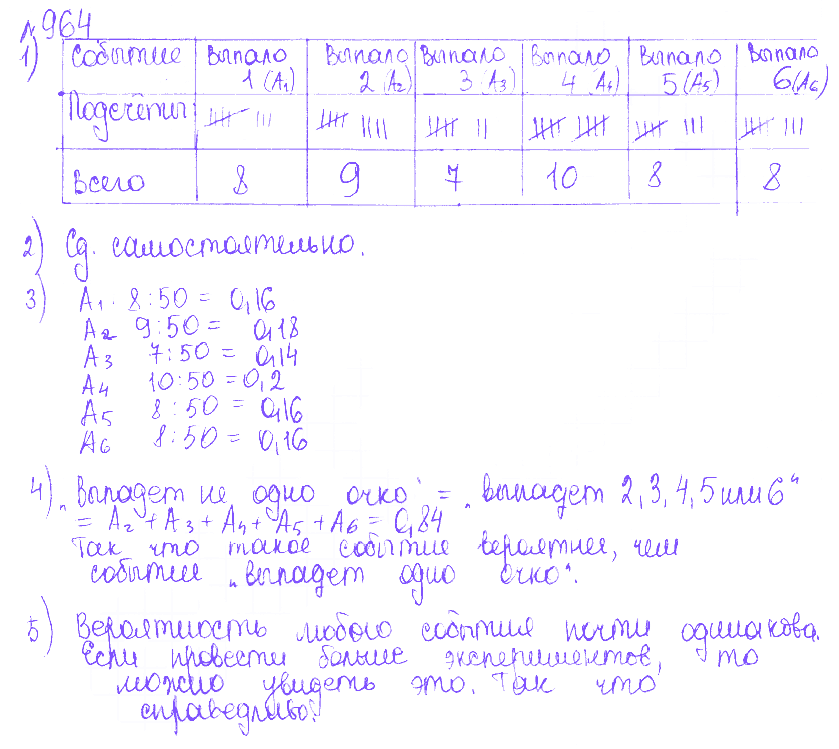 №964
1) Событие Выпало 1 (A₁) Выпало 2 (A₂) Выпало 3 (A₃) Выпало 4 (A₄) Выпало 5 (A₅) Выпало 6 (A₆)
Подсчёты
Всего 8 9 7 10 8 8
2) Сд. самостоятельно.
3) A₁. 8:50 = 0,16
A₂ 9:50 = 0,18
A₃ 7:50 = 0,14
A₄ 10:50 = 0,2
A₅ 8:50 = 0,16
A₆ 8:50 = 0,16
4) „Выпадет не одно очко“ = „выпадет 2, 3, 4, 5 или 6“
= A₂ + A₃ + A₄ + A₅ + A₆ = 0,84
Так что такое событие вероятнее, чем
событие „выпадет одно очко“.
5) Вероятность любого события почти одинакова.
Если провести больше экспериментов, то
можно увидеть это. Так что
справедливо.